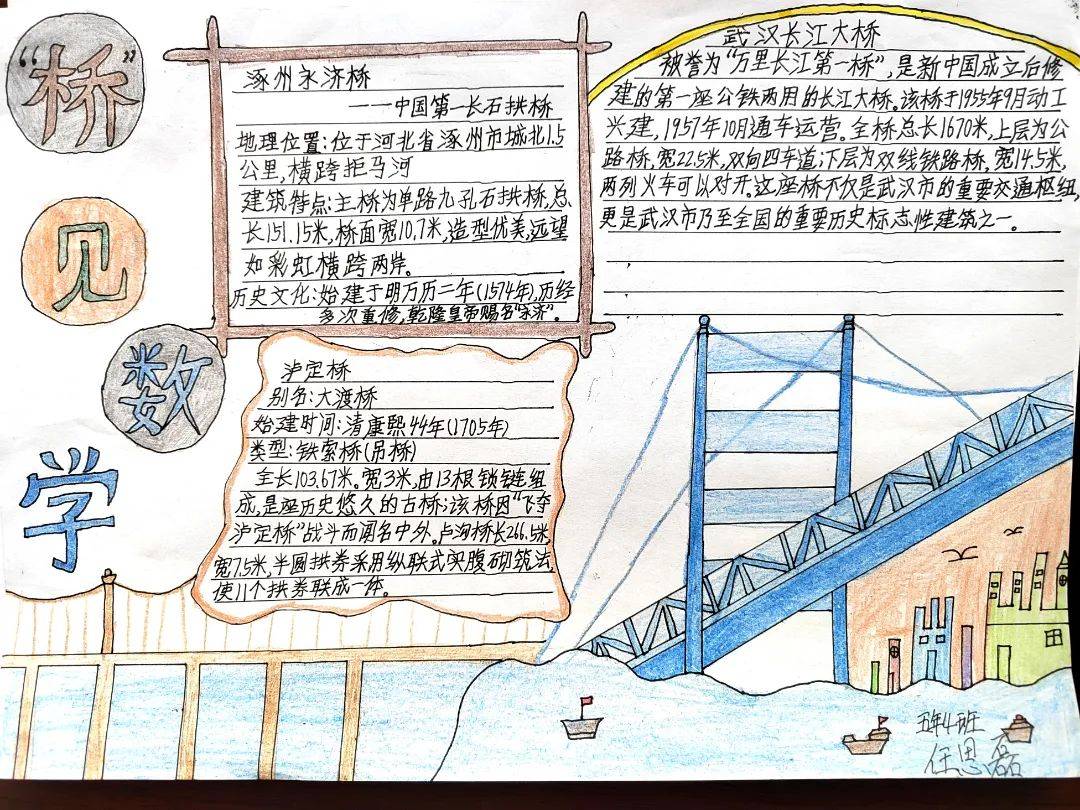 “桥”
见
数
学
涿州永济桥
——中国第一长石拱桥
地理位置:位于河北省涿州市城北1.5
公里,横跨拒马河
建筑特点:主桥为单路九孔石拱桥,总
长151.15米,桥面宽10.7米,造型优美,远望
如彩虹横跨两岸。
历史文化:始建于明万历二年(1574年),历经
多次重修,乾隆皇帝赐名“永济”。
泸定桥
别名:大渡桥
始建时间:清康熙44年(1705年)
类型:铁索桥(吊桥)
全长103.67米。宽3米,由13根锁链组
成,是座历史悠久的古桥;该桥因“飞夺
泸定桥”战斗而闻名中外。卢沟桥长266.5米,
宽7.5米,半圆拱券采用纵联式实腹砌筑法,
使11个拱券联成一体。
武汉长江大桥
被誉为“万里长江第一桥”,是新中国成立后修
建的第一座公铁两用的长江大桥。该桥于1955年9月动工
兴建,1957年10月通车运营。全桥总长1670米,上层为公
路桥,宽22.5米,双向四车道;下层为双线铁路桥,宽14.5米,
两列火车可以对开。这座桥不仅是武汉市的重要交通枢纽,
更是武汉市乃至全国的重要历史标志性建筑之一。
五年4班
任思磊